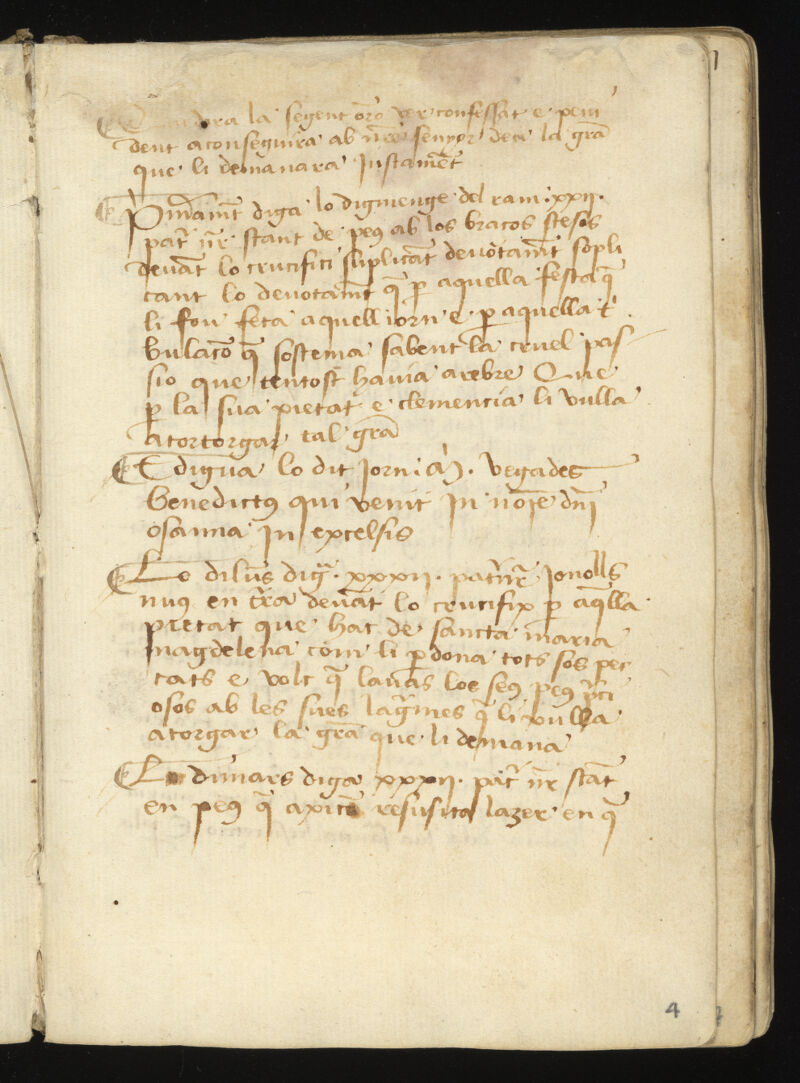 dira la segent orõ ver confessat e peni
dent aconseguira ab nr̃e senyor deu la grã
que li demanara Justamẽt
Pm̃amẽt diga lo digmenge del ram .xxii.
patr̃ nr̃ stant de peus ab los bracos stesos
deuãt lo crucifici suplicãt deuotamẽt sopli
cant lo deuotamẽt q̃ ꝑ aquella festa q̃
li fou feta aquell iorn e ꝑ aquella t'
bulacõ q̃ sostenia sabent la cruel pas
sio que tentost hauia arebre Que
ꝑ la sua pietat e clemencia li vulla
atortorgar tal grã
E digua lo dit Jorn . vegades
Benedictus qui venit In nõie dñi
osanna In excelsis
Lo diluns dig̃ . xxxii . patr̃ nr̃ Jonolls
nuus en tr̃a deuãt lo crucifix ꝑ aq̃lla
pietat que hac de sancta maria
magdelena com li ꝑdona tots sos pec
cats e volc q̃ lauas los seus peus p̃ci
osos ab les sues lagr̃mes q̃ li vulla
atorgar la grã que li demana
Lo dimars diga xxxii . patr̃ nr̃ stãt
en peus q̃ axi cõ resusita lazer en q̃
4